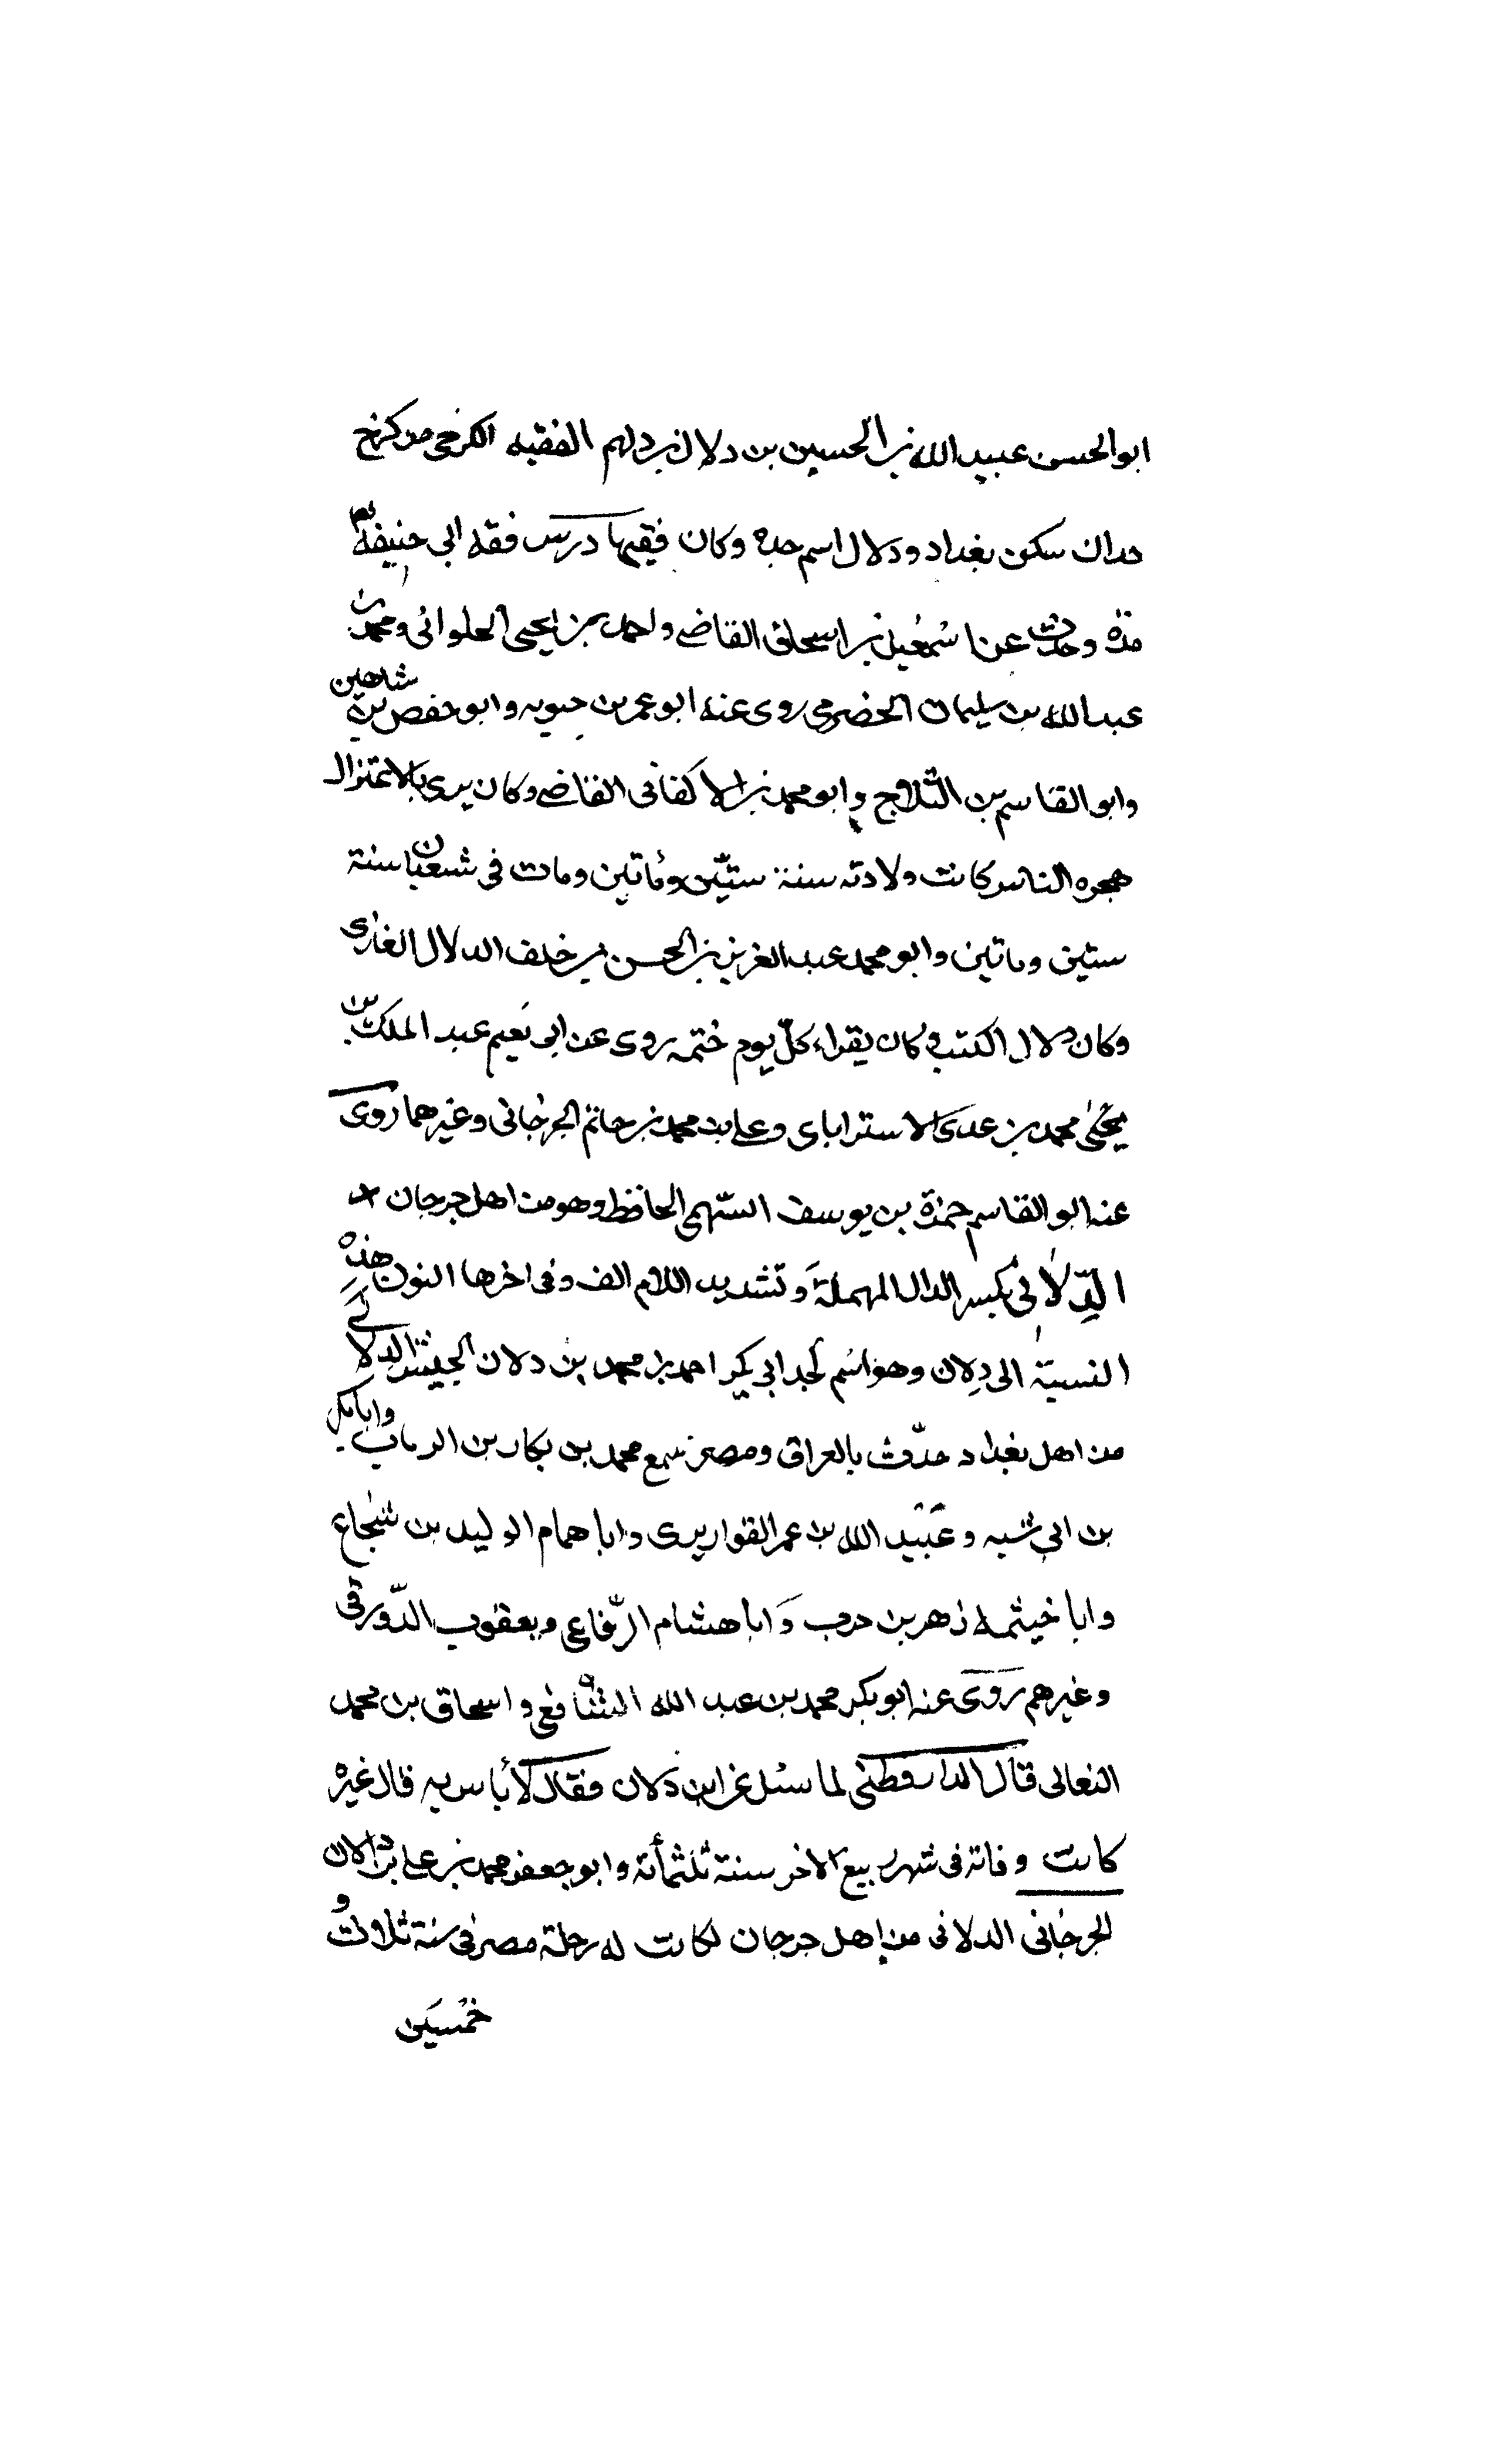 ابو الحسن عبيد الله بن الحسين بن دلال بن دلهم الفقيه الكرخي من كرخ
حدان سكن بغداد ودلال اسم جده وكان فقيها درس فقه ابي حنيفة
مدة وحدث عن اسمعيل بن اسحاق القاضي واحمد بن يحيى الحلوائي ومحمد بن
عبد الله بن سليمان الحضرمي روى عنه ابو عمر بن حيويه وابو حفص بن شاهين
وابو القاسم بن الثلاج وابو محمد بن الاكفانى القاضي وكان يرى بالاعتزال
هجره الناس كانت ولادته سنة ستين ومأتين ومات فى شعبان سنة
ستين وماتين وابو محمد عبد العزيز بن الحسن بن خلف الدلال الغازى
وكان دلال الكتب وكان يقراء كلّ يوم ختمه روى عن ابى نعيم عبد الملك بن
يحيى محمد بن عدى الاستراباى وعلي بن محمد بن حاتم الجرجانى وغيرهما روى
عنه ابو القاسم حمزة بن يوسف السّهمى الحافظ وهو من اهل جرجان
الدِّلانى بكسر الدال المهملة وتشديد اللام الف وفى اخرها النون هذه
النسبة الى دِلان وهو اسم لجد ابي بكر احمد بن محمد بن دلان الدلانى
من اهل بغداد حدّث بالعراق ومصر سمع محمد بن بكار بن الريان وابا بكر
بن ابي شيبه وعبيد الله بن عمر القواريرى وابا همام الوليد بن شجاع
وابا خيثمه زهر بن حرب وَابا هشام الرّفاعي ويعقوب الدّورقى
وغيرهم روى عنه ابو بكر محمد بن عبد الله الشافعي واسحاق بن محمد
النعالى قال الدارقطنى لما سئل عن ابن دلان فقال لا بأس به قال غيره
كانت وفاته فى شهر ربيع الاخر سنة ثلثمأة وابو جعفر محمد بن علي بن دلان
الجرجانى الدلانى من اهل جرجان كانت له رحلة مصر فى سنة ثلاث و
خمسين